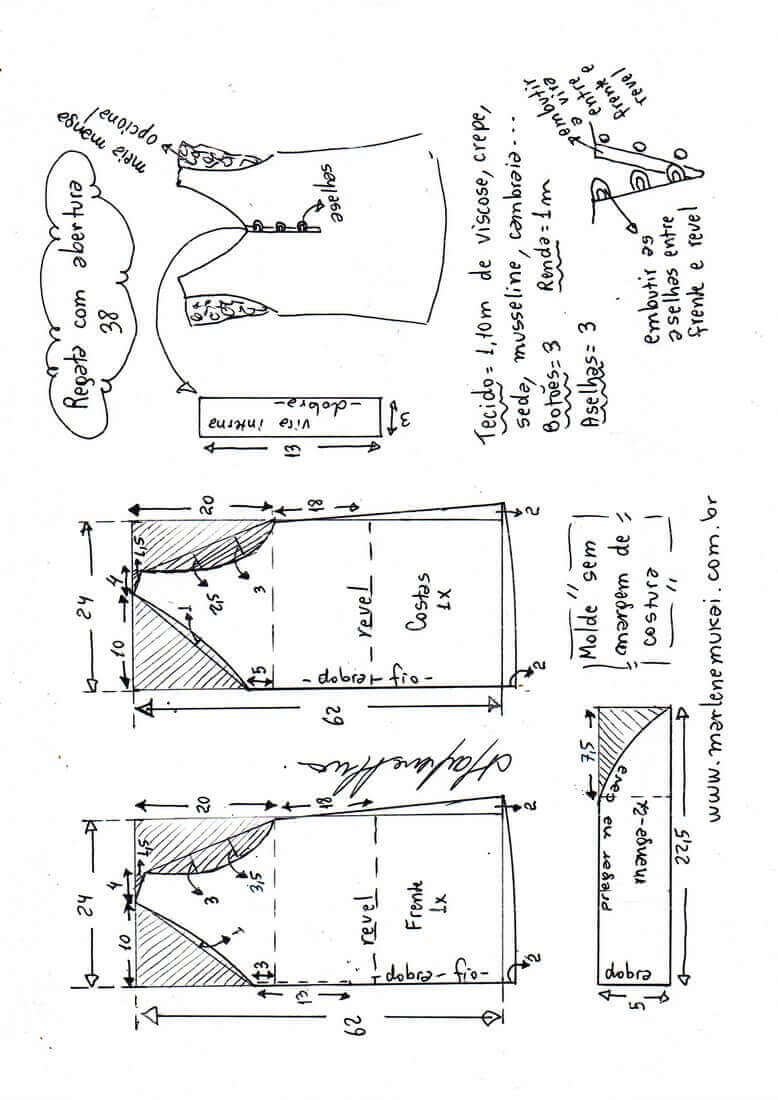 Regata com abertura
38
meia manga
opcional
aselhas
vira interna
-dobra-
13
3
Tecido = 1,10m de viscose, crepe,
seda, musseline, cambraia...
Botões = 3 Renda = 1m
Aselhas = 3
embutir
a vira
entre
frente e
revel
embutir as
aselhas entre
frente e revel
24
10
4
1,5
20
18
1
2,5
3
5
revel
Costas
1x
-fio-
dobra
62
2
2
24
10
4
1,5
20
18
1
3
3,5
3
13
revel
Frente
1x
-fio-
dobra
62
2
2
Molde sem
margem de
costura
7,5
pregar na cava
manga-2x
dobra
22,5
5
www.marlenemukai.com.br